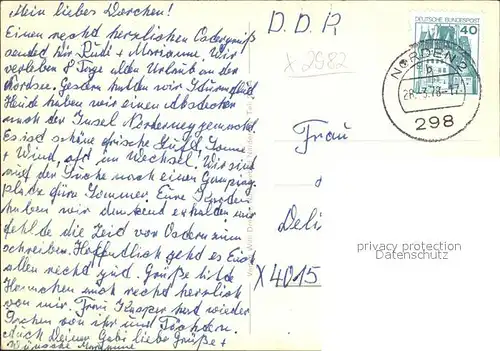 Mein liebes Dorchen!
Einen recht herzlichen Ostergruß
sendet dir Rudi + Marianne. Wir
verleben 8 Tage alten Urlaub an der
Nordsee. Gestern hatten wir Sturmflut
Heute haben wir einen Abstecher
nach der Insel Norderney gemacht.
Es ist schöne frische Luft, Sonne
+ Wind, oft im Wechsel. Wir sind
auf der Suche nach einem Camping
platz fürn Sommer. Eure
haben wir dankend erhalten, mir
fehlte die Zeit vor Ostern zum
schreiben. Hoffentlich geht es Euch
allen recht gut. Grüße bitte
recht herzlich
von mir. Frau hat wieder
von ihr und
Auch Deiner Gabi liebe Grüße +
Wünsche Marianne
D.D.R
X 2982
DEUTSCHE BUNDESPOST
40
NORDEN 2
298
Frau
Deli
X 4015
privacy protection
Datenschutz